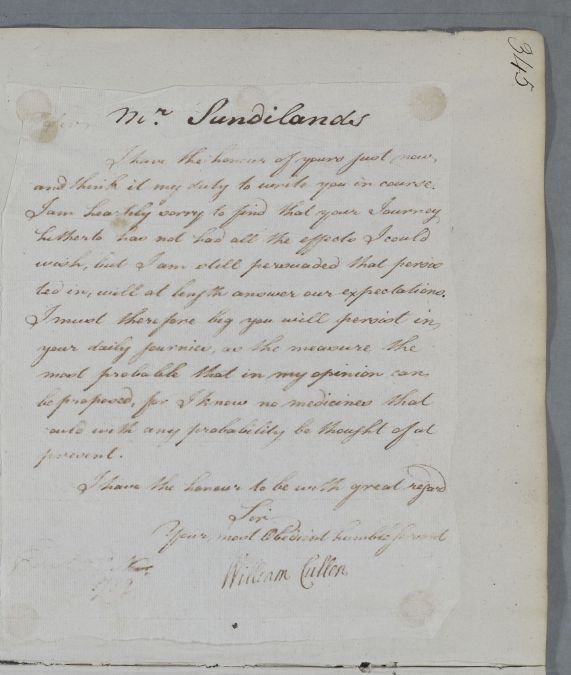 345
Mr. Sundilands
I have the honour of yours just now,
and think it my duty to write you in course.
I am heartily sorry to find that your Journey
hitherto has not had all the effects I could
wish, but I am still persuaded that persis
ted in, will at length answer our expectations.
I must therefore beg you will persist in
your daily journies, as the measure the
most probable that in my opinion can
be proposed, for I know no medicines that
could with any probability be thought of at
present.
I have the honour to be with great regard
Sir
Your most Obedient humble servant
William Cullen